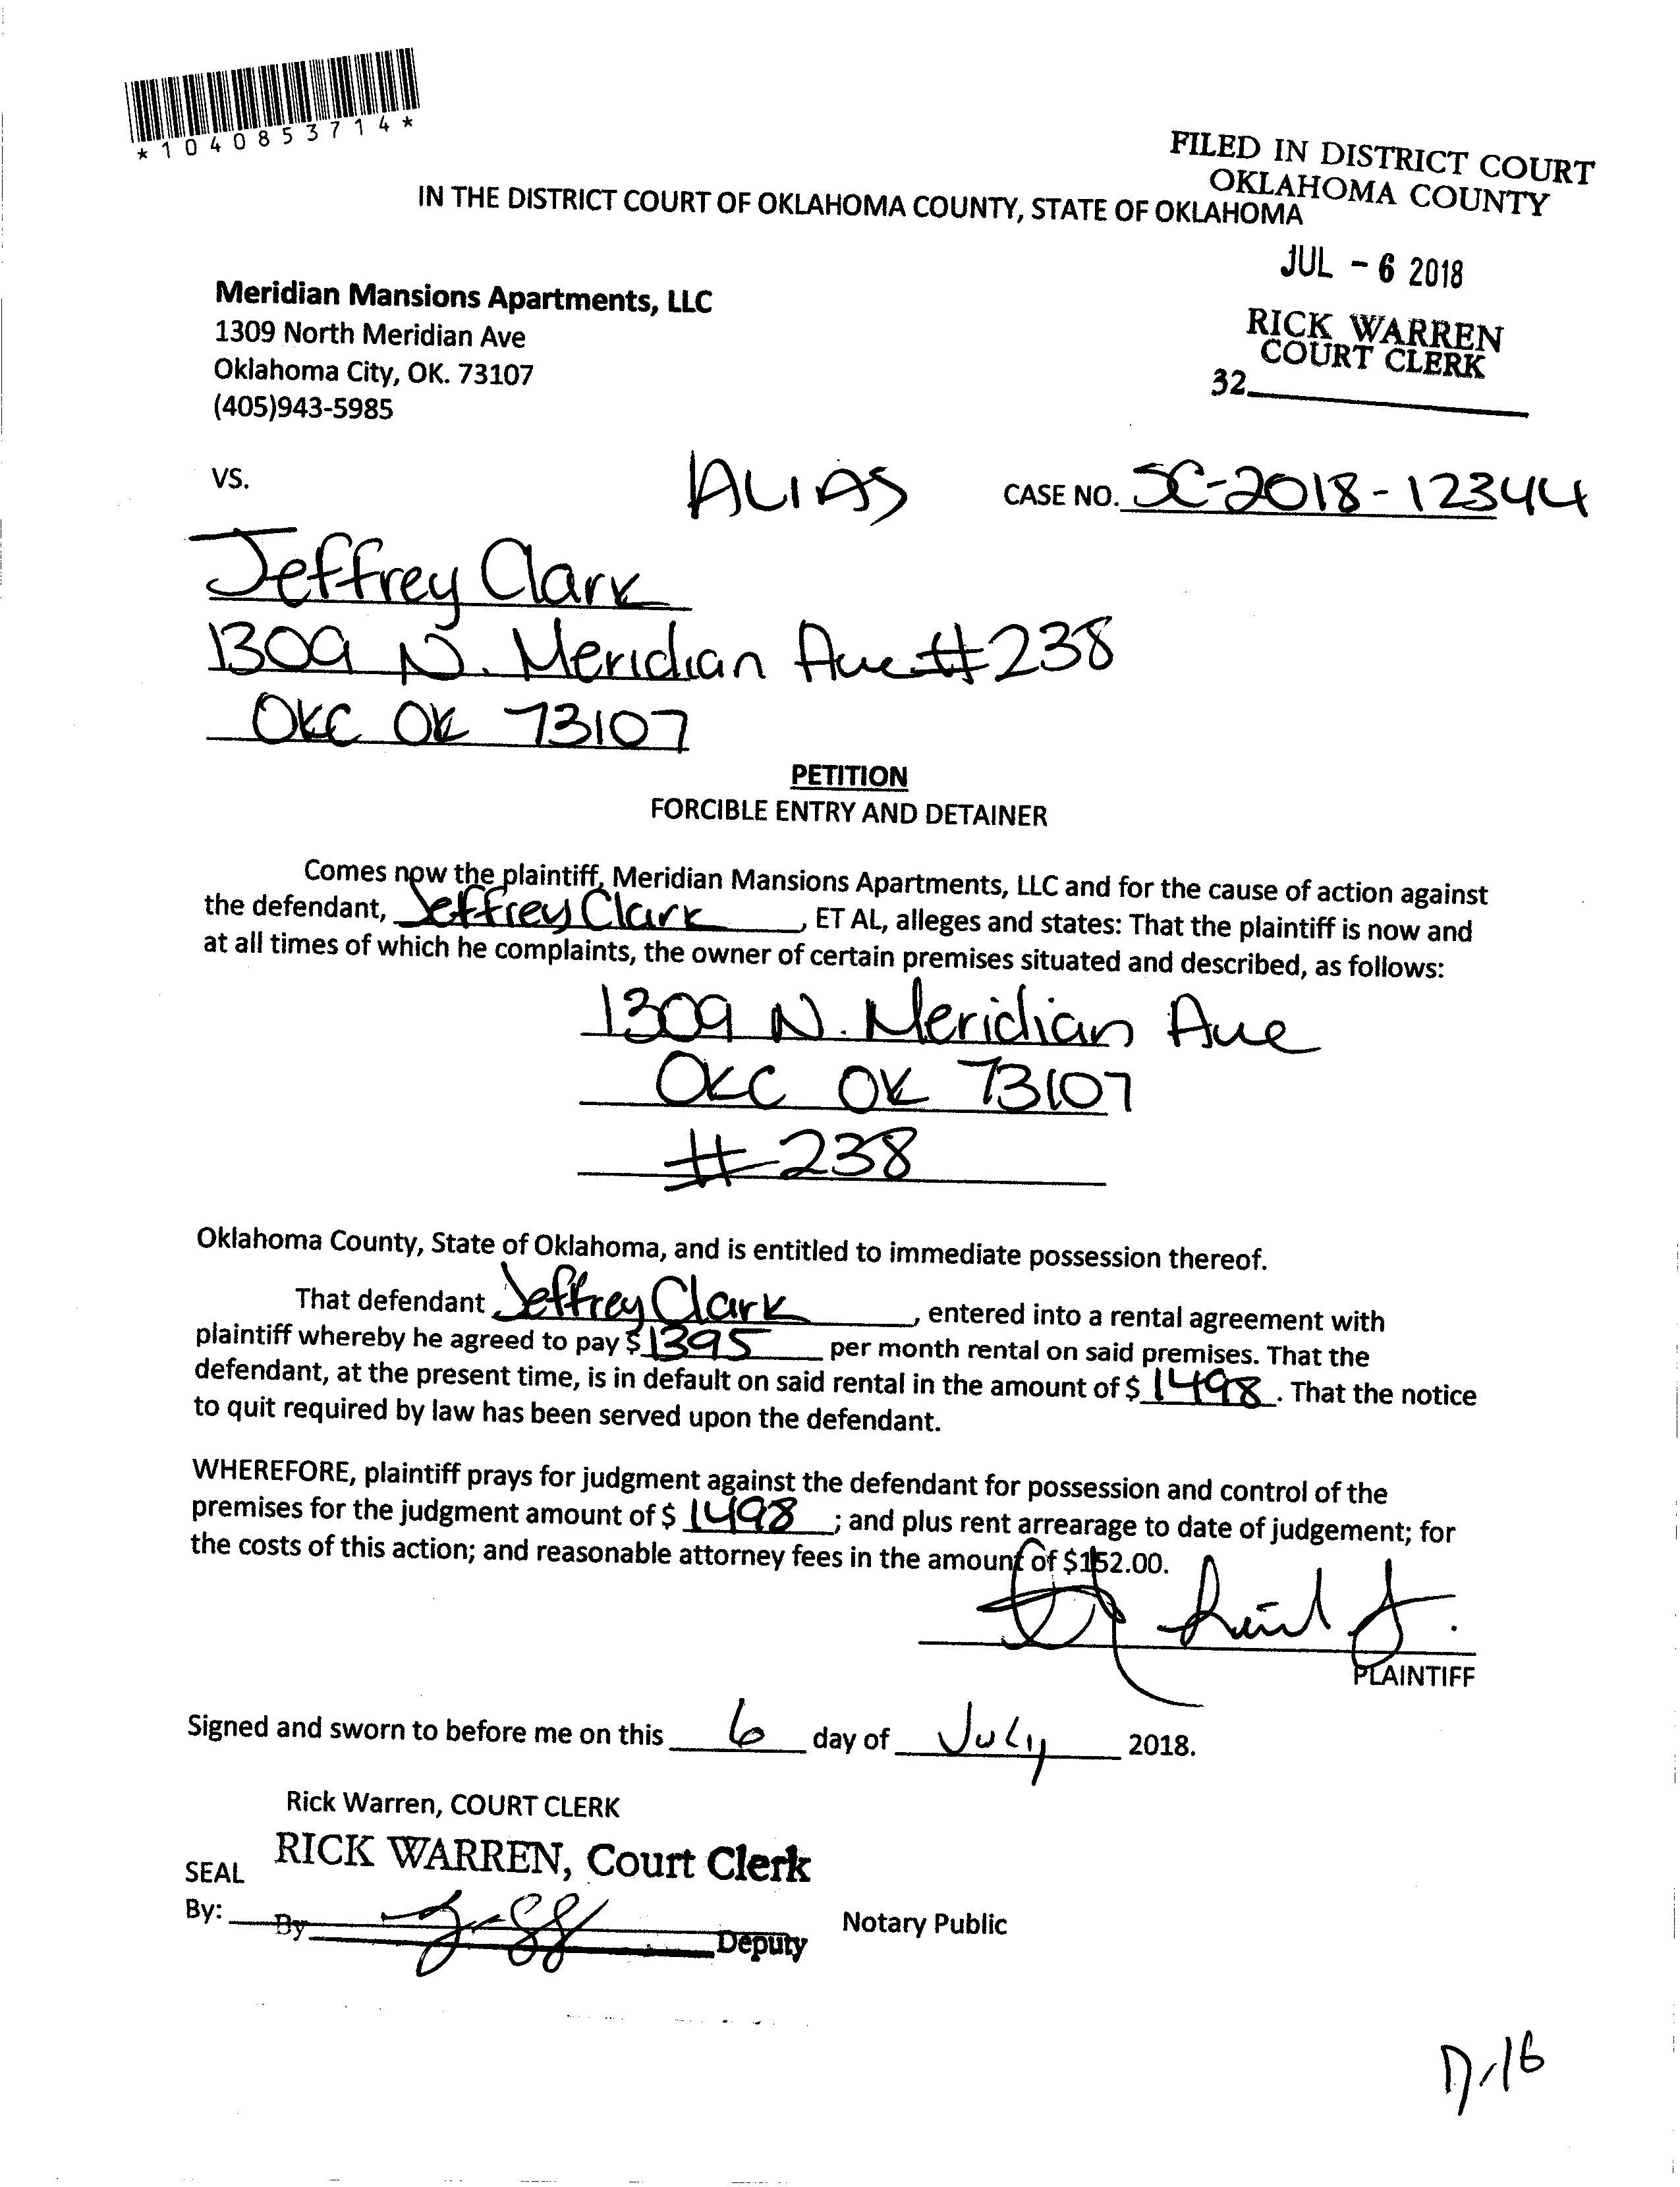 *1040853714*
FILED IN DISTRICT COURT
OKLAHOMA COUNTY
IN THE DISTRICT COURT OF OKLAHOMA COUNTY, STATE OF OKLAHOMA
JUL - 6 2018
RICK WARREN
COURT CLERK
32
Meridian Mansions Apartments, LLC
1309 North Meridian Ave
Oklahoma City, OK. 73107
(405)943-5985
VS.
ALIAS
CASE NO. SC-2018-12344
Jeffrey Clark
1309 N. Meridian Ave #238
OKC OK 73107
PETITION
FORCIBLE ENTRY AND DETAINER
Comes now the plaintiff, Meridian Mansions Apartments, LLC and for the cause of action against
the defendant, Jeffrey Clark, ET AL, alleges and states: That the plaintiff is now and
at all times of which he complaints, the owner of certain premises situated and described, as follows:
1309 N. Meridian Ave
OKC OK 73107
#238
Oklahoma County, State of Oklahoma, and is entitled to immediate possession thereof.
That defendant Jeffrey Clark, entered into a rental agreement with
plaintiff whereby he agreed to pay $1395 per month rental on said premises. That the
defendant, at the present time, is in default on said rental in the amount of $1498. That the notice
to quit required by law has been served upon the defendant.
WHEREFORE, plaintiff prays for judgment against the defendant for possession and control of the
premises for the judgment amount of $1498; and plus rent arrearage to date of judgement; for
the costs of this action; and reasonable attorney fees in the amount of $152.00.
PLAINTIFF
Signed and sworn to before me on this 6 day of July 2018.
Rick Warren, COURT CLERK
RICK WARREN, Court Clerk
SEAL
By: By Deputy
Notary Public